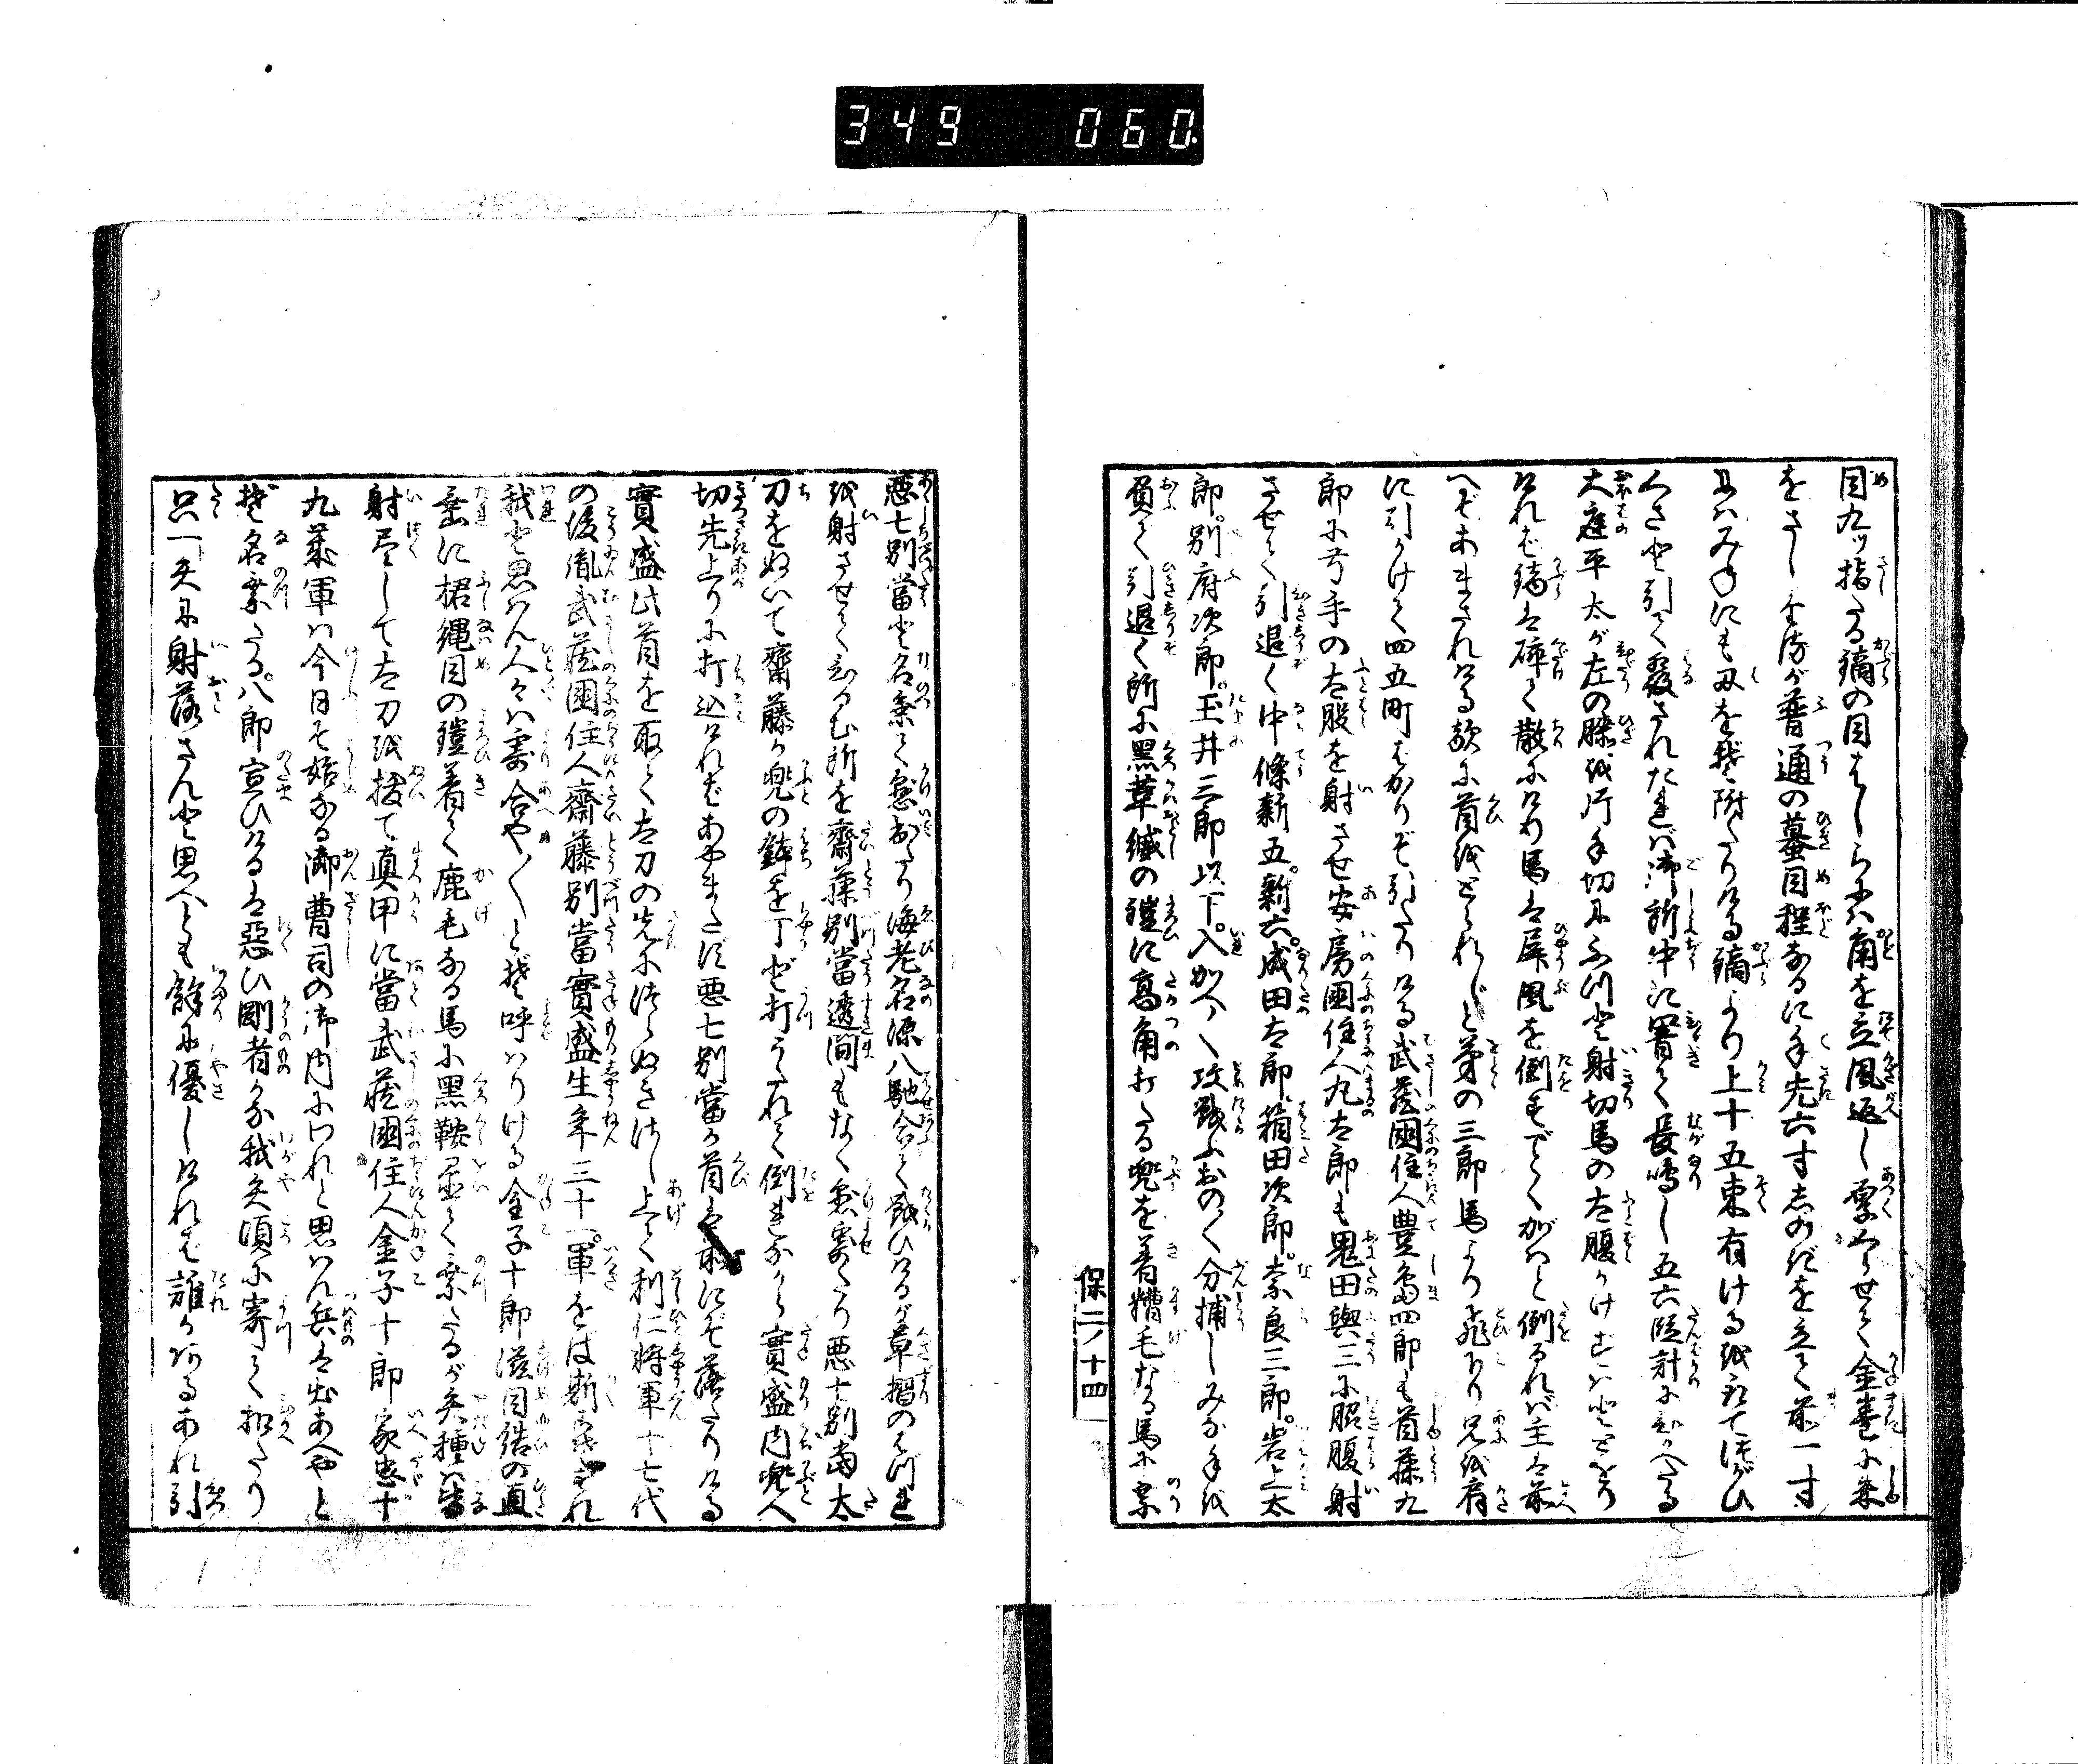 349 060.
目九ツ指たる鏑の目はしらにハ角を立風返し厚くくらせて金巻に朱
をさしたるが普通の蟇目程なるに手先六寸しのぎを立て前一寸
にハみねにも刃をぞ附たりける鏑より上十五束有ける取てつがひ
ぐさと引て發されたれバ御所中に響て長鳴し五六段計にひかへたる
大庭平太が左の膝を片手切にふつと射切馬の太腹かけずハととをり
ければ鏑は碎て散にけり馬は屏風を倒すごとくがハと倒るれバ主は前
へぞあまされける敵に首をとられじと弟の三郎馬より飛下り兄を肩
に引かけて四五町ばかりぞ引たりける武蔵國住人豊嶋四郎も首藤九
郎に弓手の太股を射させ安房國住人丸太郎も鬼田與三に脇腹射
させて引退く中條新五。新六。成田太郎。箱田次郎。奈良三郎。岩上太
郎。別府次郎。玉井三郎以下。入かへ〳〵攻戰ふおの〳〵分捕しみな手を
負て引退く所に黒革縅の鎧に高角打たる兜を着糟毛なる馬に乗
保二ノ十四
悪七別當と名乗て懸出たり海老名源八馳合て戰ひけるが草摺のはづれ
を射させてひるむ所を齋藤別當透間もなく懸寄たり悪七別當太
刀をぬいて齋藤が兜の鉢を丁ど打うたれて倒れながら實盛内兜へ
切先上りに打込ければあやまたず悪七別當が首は前にぞ落たりける
實盛此首を取て太刀の先につらぬきさし上て利仁将軍十七代
の後胤武蔵國住人齋藤別當實盛生年三十一。軍をば斯こそすれ
我と思ハん人々ハ寄合や〳〵とぞ呼ハりける金子十郎滋目結の直
垂に捃縄目の鎧着て鹿毛なる馬に黒鞍置て乗たるが矢種ハ皆
射尽して太刀を抜て真甲に當武蔵國住人金子十郎家忠十
九歳軍ハ今日ぞ始なる御曹司の御内にわれと思ハん兵は出あへやと
ぞ名乗たる。八郎宣ひけるは悪ひ剛者かな我矢頃に寄て扣たり
只一矢に射落さんと思へとも餘に優しければ誰かあるあれ引